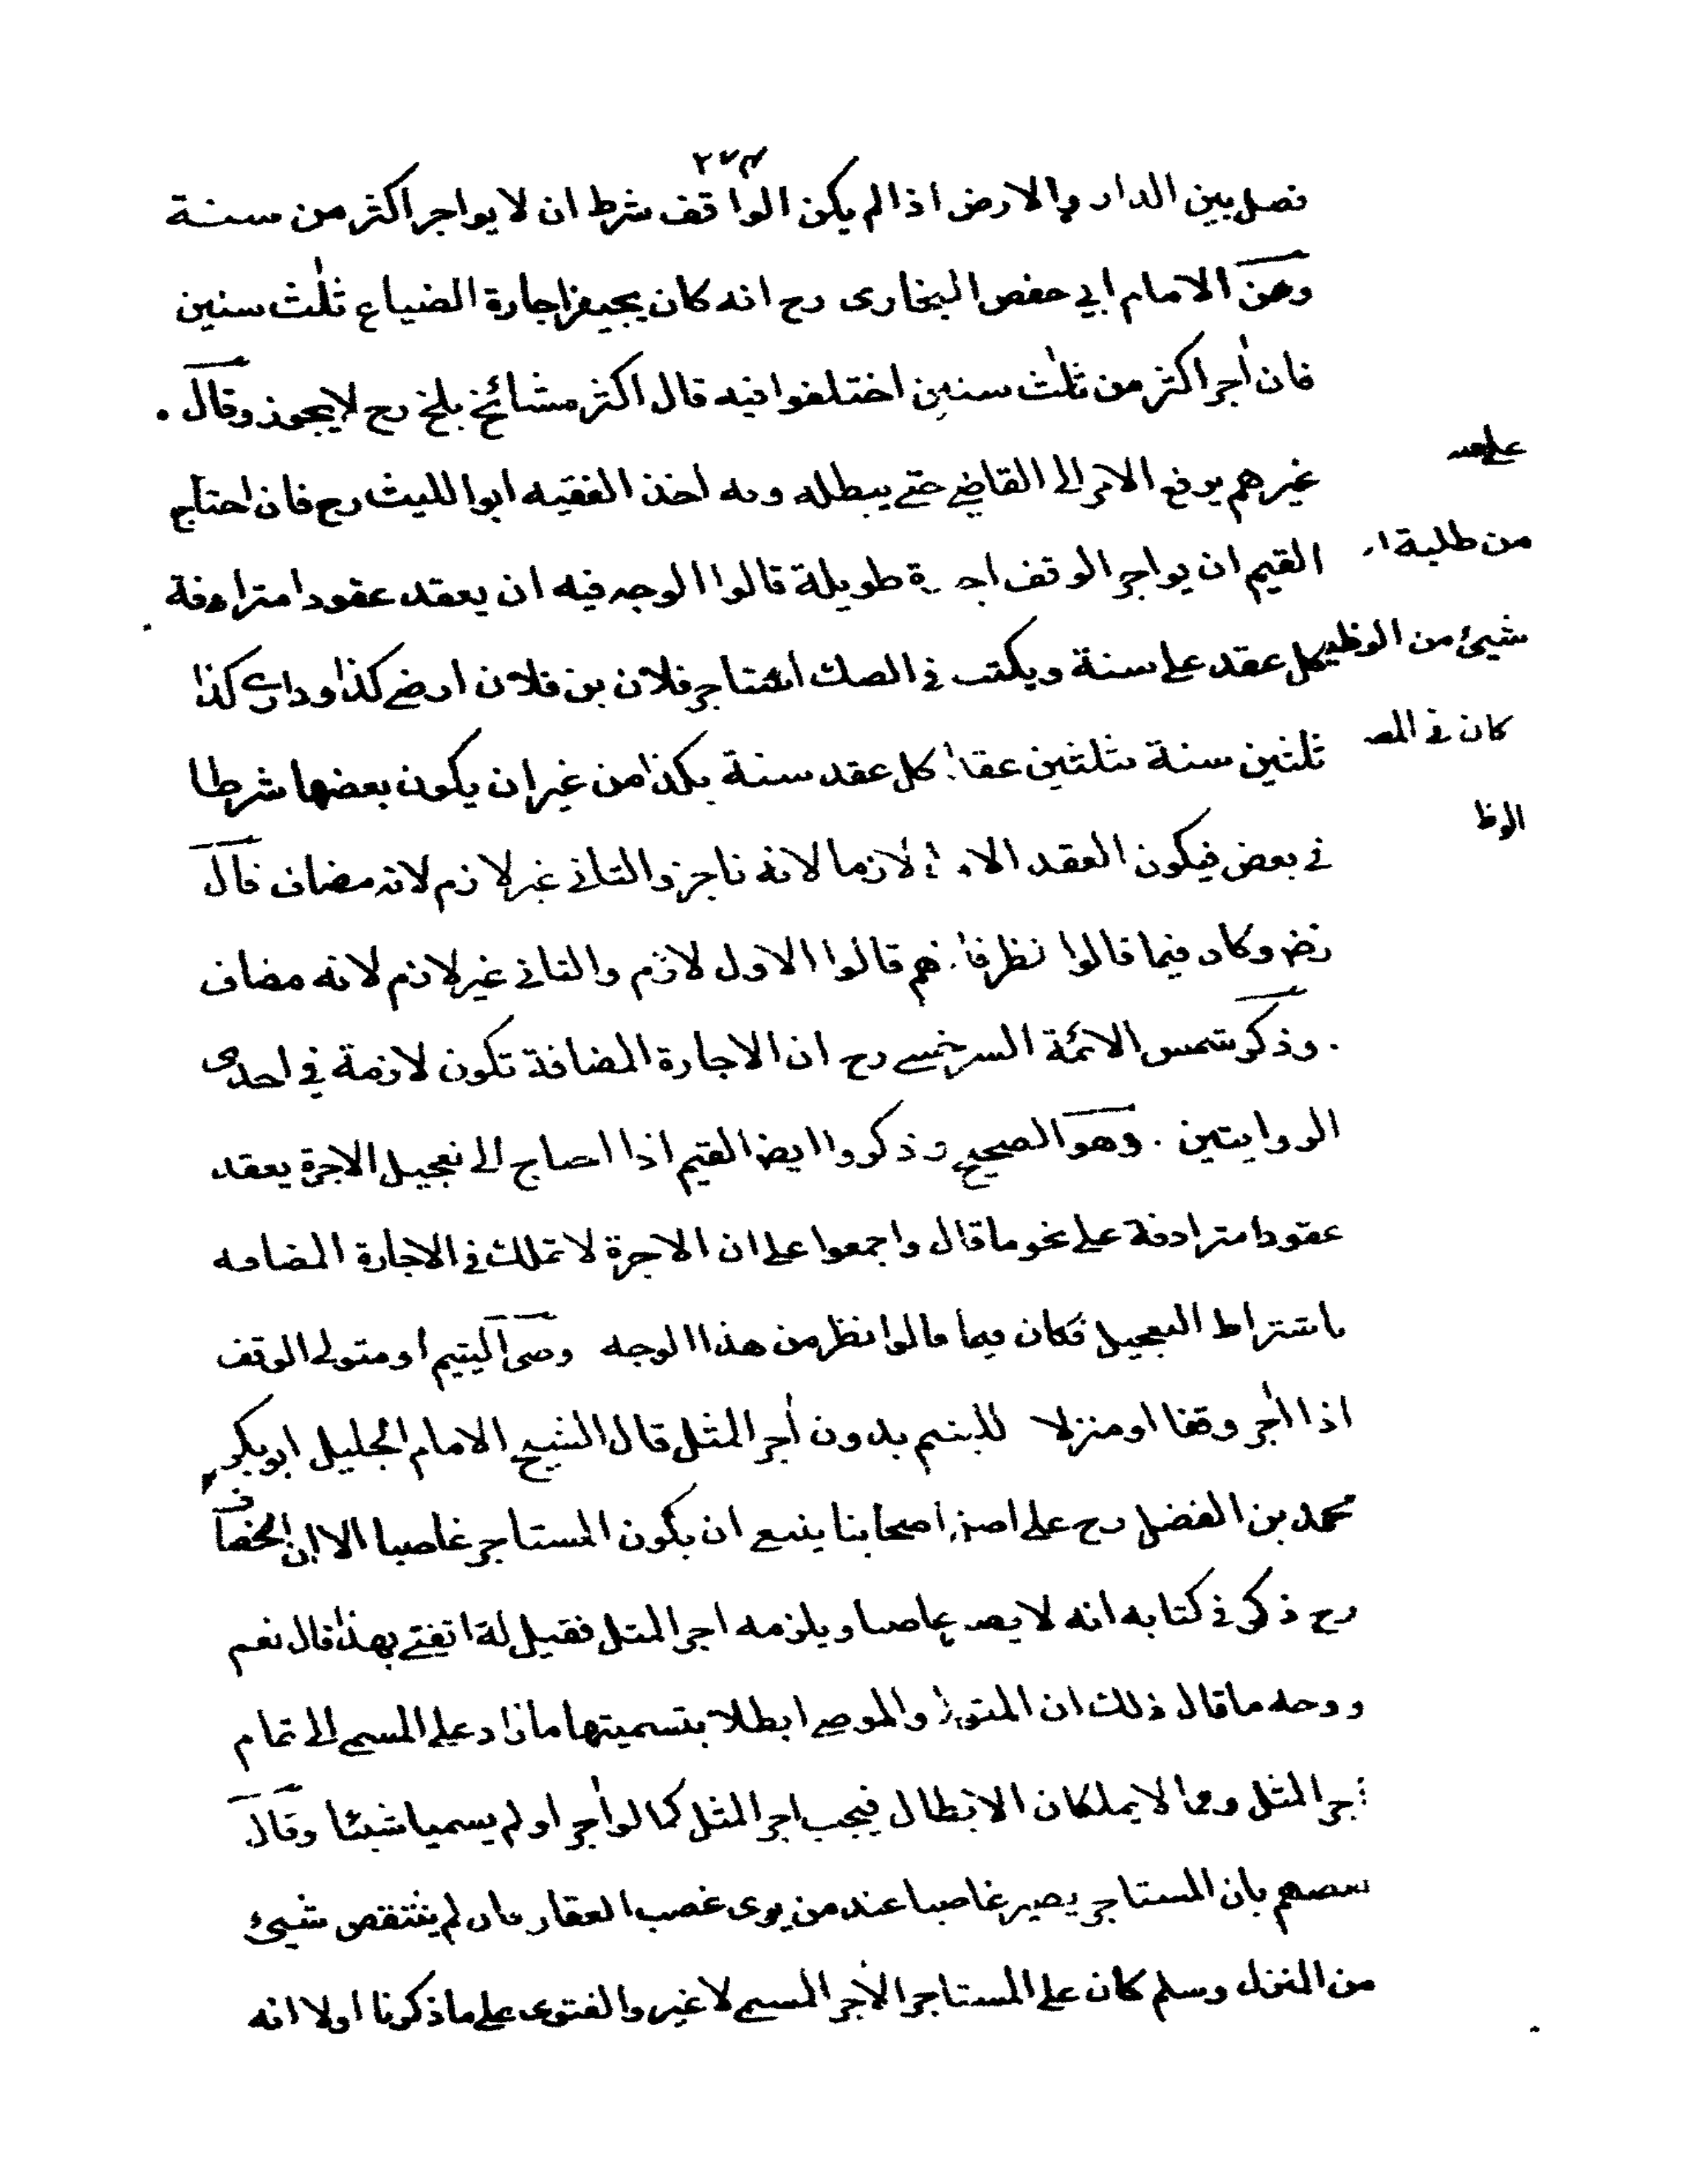 ٢٧٣
فصل بين الدار والارض اذا لم يكن الواقف شرط ان لا يواجر اكثر من سنة
وعن الامام ابي حفص البخارى رح انه كان يجيز اجارة الضياع ثلٰث سنين
فان اٰجر اكثر من ثلٰث سنين اختلفوا فيه قال اكثر مشائخ بلخ رح لا يجوز وقال
غيرهم يرفع الامر الى القاضي حتى يبطله وبه اخذ الفقيه ابوا لليث رح فان احتاج
القيم ان يواجر الوقف اجارة طويلة قالوا الوجه فيه ان يعقد عقودا مترادفة
كل عقد على سنة ويكتب في الصك استاجر فلان بن فلان ارض كذا ودار كذا
ثلثين سنة بثلثين عقدا كل عقد سنة بكذا من غير ان يكون بعضها شرطا
في بعض فيكون العقد الاول لازما لانه ناجز والثاني غير لازم لانه مضاف قال
رض وكان فيما قالوا نظر فانهم قالوا الاول لازم والثاني غير لازم لانه مضاف
وذكر شمس الائمة السرخسي رح ان الاجارة المضافة تكون لازمة في احدى
الروايتين . وهو الصحيح وذكروا ايضا القيم اذا احتاج الى تعجيل الاجرة يعقد
عقودا مترادفة على نحو ما قال واجمعوا على ان الاجرة لا تملك في الاجارة المضافه
باشتراط التعجيل فكان فيما قالوا نظر من هذا الوجه وصى اليتيم او متولى الوقف
اذا اٰجر وقفا او منزلا لليتيم بدون اجر المثل قال الشيخ الامام الجليل ابوبكر
محمد بن الفضل رح على اصل اصحابنا ينبغي ان يكون المستاجر غاصبا الا ان الخصاف
رح ذكر في كتابه انه لا يصير غاصبا ويلزمه اجر المثل فقيل له اتفتى بهذا قال نعم
ووجه ما قال ذلك ان المتولى والموصى ابطلا بتسميتها ما زاد على المسمى الى تمام
اجر المثل وهما لا يملكان الابطال فيجب اجر المثل كما لو اٰجر او لم يسميا شيئا وقال
بعضهم بان المستاجر يصير غاصبا عند من يرى غصب العقار فان لم ينتقص شيئ
من المنزل وسلم كان على المستاجر الاجر المسمى لا غير والفتوى على ما ذكرنا اولا انه
من طلبة
شيئ من الوظيـ
كان في المصـ
الوظ